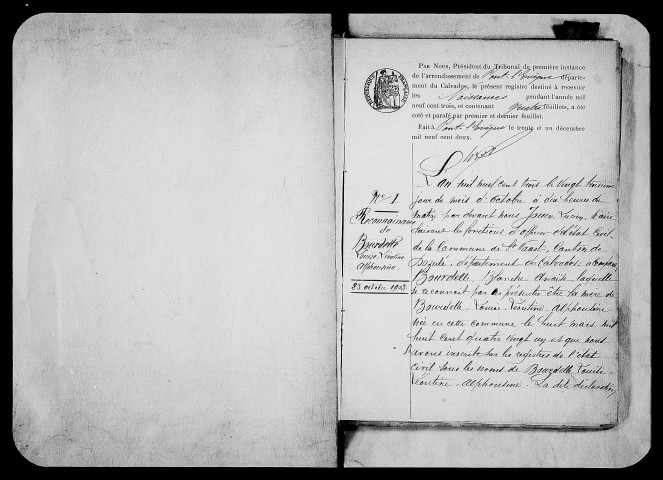 RÉPUBLIQUE FRANÇAISE
Par Nous, Président du Tribunal de première instance
de l'arrondissement de Pont-l'Evêque départe-
ment du Calvados, le présent registre destiné à recevoir
les Naissances pendant l'année mil
neuf cent trois, et contenant quatre feuillets, a été
coté et parafé par premier et dernier feuillet.
Fait à Pont-l'Evêque le trente et un décembre
mil neuf cent deux.
N° 1
Reconnaissance
de
Bourdelle
Louise Léontine
Alphonsine
23 octobre 1903
L'an mil neuf cent trois le vingt troisième
jour du mois d'octobre à dix heures du
matin par devant nous Lucien, Maire
faisant les fonctions d'officier d'état civil
de la Commune de St Vaast, Canton de
Dozulé, département du Calvados a comparu
Bourdelle Blanche Anaïse laquelle
a reconnu par ces présentes être la mère de
Bourdelle Louise Léontine Alphonsine
née en cette commune le huit mars mil
huit cent quatre vingt un et que nous
avons inscrite sur les registres de l'état
civil sous les noms de Bourdelle Louise
Léontine Alphonsine. La dite déclaration